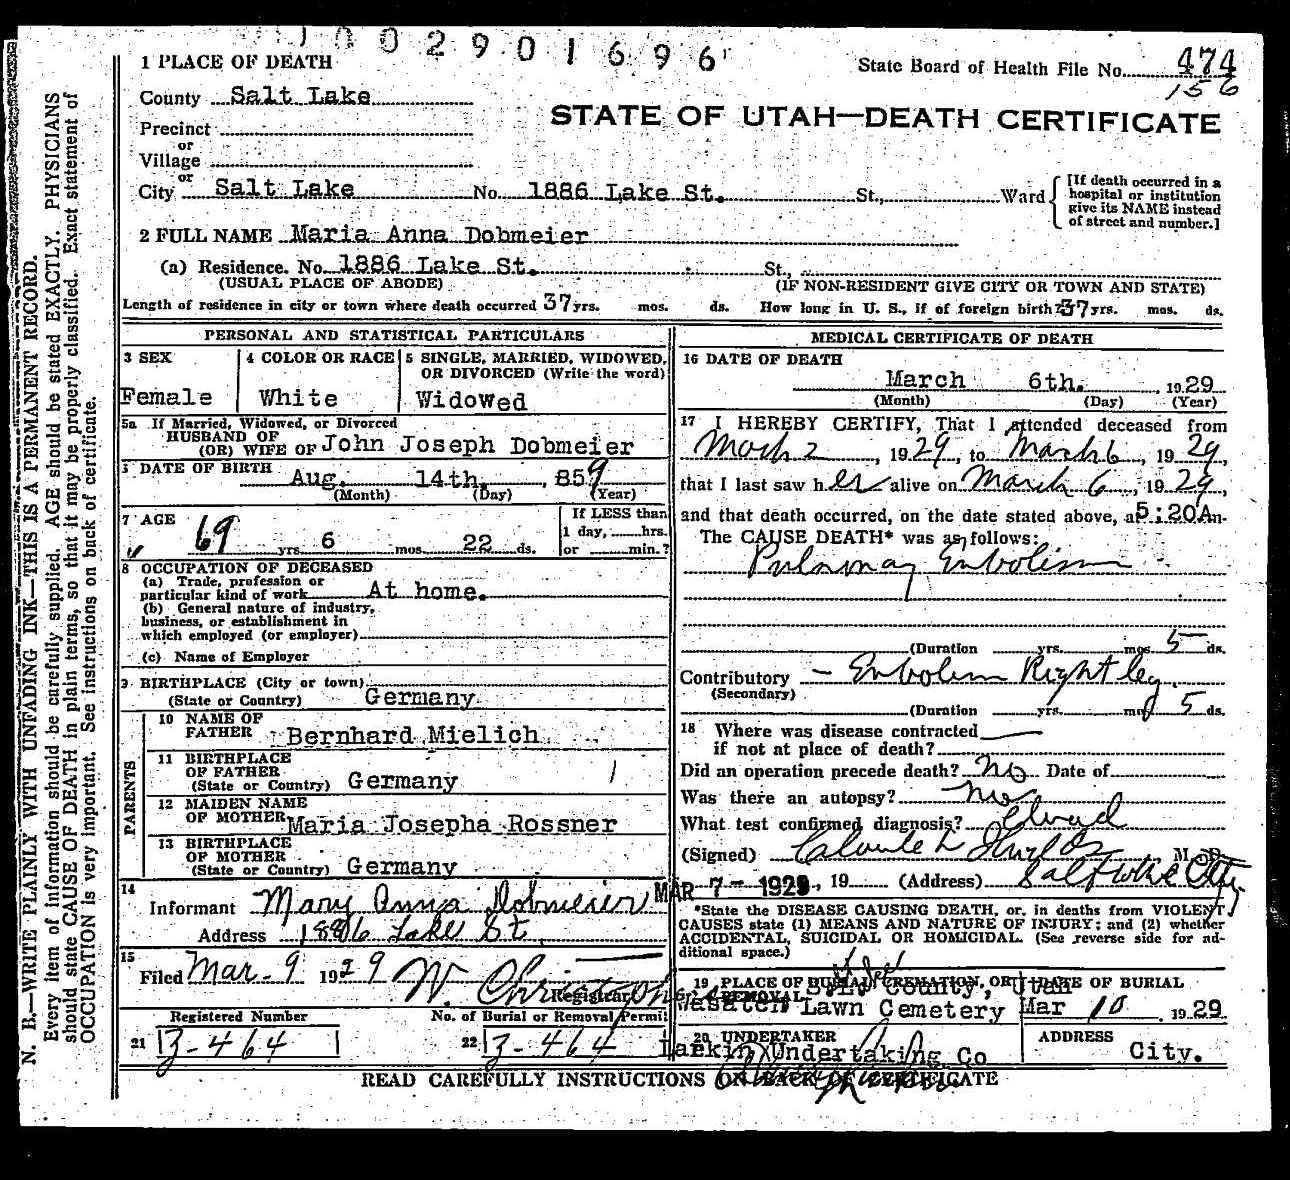 1002901696
1 PLACE OF DEATH
State Board of Health File No. 474
156
County Salt Lake
STATE OF UTAH—DEATH CERTIFICATE
Precinct
or
Village
or
City Salt Lake No. 1886 Lake St. St., Ward
[If death occurred in a
hospital or institution
give its NAME instead
of street and number.]
2 FULL NAME Maria Anna Dobmeier
(a) Residence. No. 1886 Lake St. St.,
(USUAL PLACE OF ABODE) (IF NON-RESIDENT GIVE CITY OR TOWN AND STATE)
Length of residence in city or town where death occurred 37 yrs. mos. ds. How long in U. S., if of foreign birth? 37 yrs. mos. ds.
PERSONAL AND STATISTICAL PARTICULARS
3 SEX
Female
4 COLOR OR RACE
White
5 SINGLE, MARRIED, WIDOWED,
OR DIVORCED (Write the word)
Widowed
5a If Married, Widowed, or Divorced
HUSBAND OF
(OR) WIFE OF John Joseph Dobmeier
DATE OF BIRTH
Aug. 14th. , 859
(Month) (Day) (Year)
7 AGE
69 yrs. 6 mos. 22 ds.
If LESS than
1 day, hrs.
or min.?
8 OCCUPATION OF DECEASED
(a) Trade, profession or
particular kind of work At home.
(b) General nature of industry,
business, or establishment in
which employed (or employer)
(c) Name of Employer
9 BIRTHPLACE (City or town)
(State or Country) Germany
PARENTS
10 NAME OF
FATHER Bernhard Mielich
11 BIRTHPLACE
OF FATHER
(State or Country) Germany
12 MAIDEN NAME
OF MOTHER Maria Josepha Rossner
13 BIRTHPLACE
OF MOTHER
(State or Country) Germany
14
Informant Mary Anna Dobmeier
Address 1886 Lake St
15
Filed Mar-9 1929 W. Christ
Registrar
Registered Number No. of Burial or Removal Permit
21 3-464 22 3-464
MEDICAL CERTIFICATE OF DEATH
16 DATE OF DEATH
March 6th. , 1929
(Month) (Day) (Year)
17 I HEREBY CERTIFY, That I attended deceased from
March 2, 1929, to March 6, 1929,
that I last saw her alive on March 6, 1929,
and that death occurred, on the date stated above, at 5:20A m.
The CAUSE DEATH* was as follows:
Pulmonary Embolism
(Duration yrs. mos. 5 ds.
Contributory — Embolism Right leg
(Secondary)
(Duration yrs. mos. 5 ds.
18 Where was disease contracted
if not at place of death?
Did an operation precede death? no Date of
Was there an autopsy? no
What test confirmed diagnosis?
(Signed) Claude L Shields M. D.
MAR 7- 1929, 19 (Address) Salt Lake City
*State the DISEASE CAUSING DEATH, or, in deaths from VIOLENT
CAUSES state (1) MEANS AND NATURE OF INJURY; and (2) whether
ACCIDENTAL, SUICIDAL OR HOMICIDAL. (See reverse side for ad-
ditional space.)
19 PLACE OF BURIAL, CREMATION, OR REMOVAL
County, Utah
Wasatch Lawn Cemetery
DATE OF BURIAL
Mar 10 1929
20 UNDERTAKER
Larkin Undertaking Co
ADDRESS
City.
READ CAREFULLY INSTRUCTIONS ON BACK OF CERTIFICATE
N. B.—WRITE PLAINLY WITH UNFADING INK—THIS IS A PERMANENT RECORD.
Every item of information should be carefully supplied. AGE should be stated EXACTLY. PHYSICIANS
should state CAUSE OF DEATH in plain terms, so that it may be properly classified. Exact statement of
OCCUPATION is very important. See instructions on back of certificate.